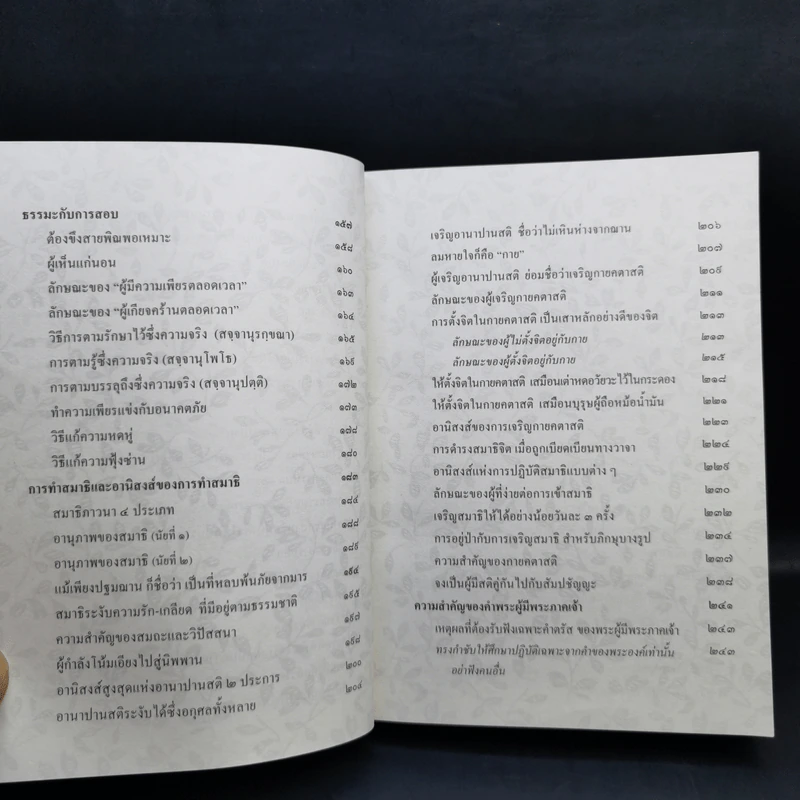 ธรรมะกับการสอบ ๑๕๗
ต้องขึงสายพิณพอเหมาะ ๑๕๘
ผู้เห็นแก่นอน ๑๖๐
ลักษณะของ “ผู้มีความเพียรตลอดเวลา” ๑๖๓
ลักษณะของ “ผู้เกียจคร้านตลอดเวลา” ๑๖๔
วิธีการตามรักษาไว้ซึ่งความจริง (สจฺจานุรกฺขณา) ๑๖๕
การตามรู้ซึ่งความจริง (สจฺจานุโพโธ) ๑๖๙
การตามบรรลุถึงซึ่งความจริง (สจฺจานุปตฺติ) ๑๗๒
ทำความเพียรแข่งกับอนาคตภัย ๑๗๓
วิธีแก้ความหดหู่ ๑๗๘
วิธีแก้ความฟุ้งซ่าน ๑๘๐
การทำสมาธิและอานิสงส์ของการทำสมาธิ ๑๘๓
สมาธิภาวนา ๔ ประเภท ๑๘๔
อานุภาพของสมาธิ (นัยที่ ๑) ๑๘๘
อานุภาพของสมาธิ (นัยที่ ๒) ๑๘๙
แม้เพียงปฐมฌาน ก็ชื่อว่า เป็นที่หลบพ้นภัยจากมาร ๑๙๔
สมาธิระงับความรัก-เกลียด ที่มีอยู่ตามธรรมชาติ ๑๙๕
ความสำคัญของสมถะและวิปัสสนา ๑๙๗
ผู้กำลังโน้มเอียงไปสู่นิพพาน ๑๙๘
อานิสงส์สูงสุดแห่งอานาปานสติ ๒ ประการ ๒๐๐
อานาปานสติระงับได้ซึ่งอกุศลทั้งหลาย ๒๐๔
เจริญอานาปานสติ ชื่อว่าไม่เหินห่างจากฌาน ๒๐๖
ลมหายใจก็คือ “กาย” ๒๐๗
ผู้เจริญอานาปานสติ ย่อมชื่อว่าเจริญกายคตาสติ ๒๐๙
ลักษณะของผู้เจริญกายคตาสติ ๒๑๑
การตั้งจิตในกายคตาสติ เป็นเสาหลักอย่างดีของจิต ๒๑๓
ลักษณะของผู้ไม่ตั้งจิตอยู่กับกาย ๒๑๓
ลักษณะของผู้ตั้งจิตอยู่กับกาย ๒๑๕
ให้ตั้งจิตในกายคตาสติ เสมือนเต่าหดอวัยวะไว้ในกระดอง ๒๑๘
ให้ตั้งจิตในกายคตาสติ เสมือนบุรุษผู้ถือหม้อน้ำมัน ๒๒๑
อานิสงส์ของการเจริญกายคตาสติ ๒๒๓
การดำรงสมาธิจิต เมื่อถูกเบียดเบียนทางวาจา ๒๒๔
อานิสงส์แห่งการปฏิบัติสมาธิแบบต่าง ๆ ๒๒๙
ลักษณะของผู้ที่ง่ายต่อการเข้าสมาธิ ๒๓๐
เจริญสมาธิให้ได้อย่างน้อยวันละ ๓ ครั้ง ๒๓๒
การอยู่ป่ากับการเจริญสมาธิ สำหรับภิกษุบางรูป ๒๓๔
ความสำคัญของกายคตาสติ ๒๓๗
จงเป็นผู้มีสติคู่กันไปกับสัมปชัญญะ ๒๓๘
ความสำคัญของคำพระผู้มีพระภาคเจ้า ๒๔๑
เหตุผลที่ต้องรับฟังเฉพาะคำตรัส ของพระผู้มีพระภาคเจ้า ๒๔๓
ทรงกำชับให้ศึกษาปฏิบัติเฉพาะจากคำของพระองค์เท่านั้น ๒๔๓
อย่าฟังคนอื่น